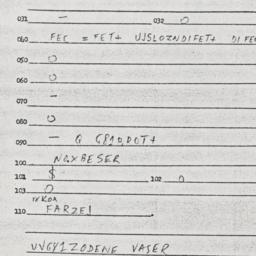 031 — 032 O
040 FEC = FET+ UJSLOZNDIFET+ DIFE
050 O
060 O
070 —
080 O
090 — Q GP1QDOT+
100 NGXBESER
101 $ 102 O
103 O
110 FARZEI
VVGY1ZODENE VASER